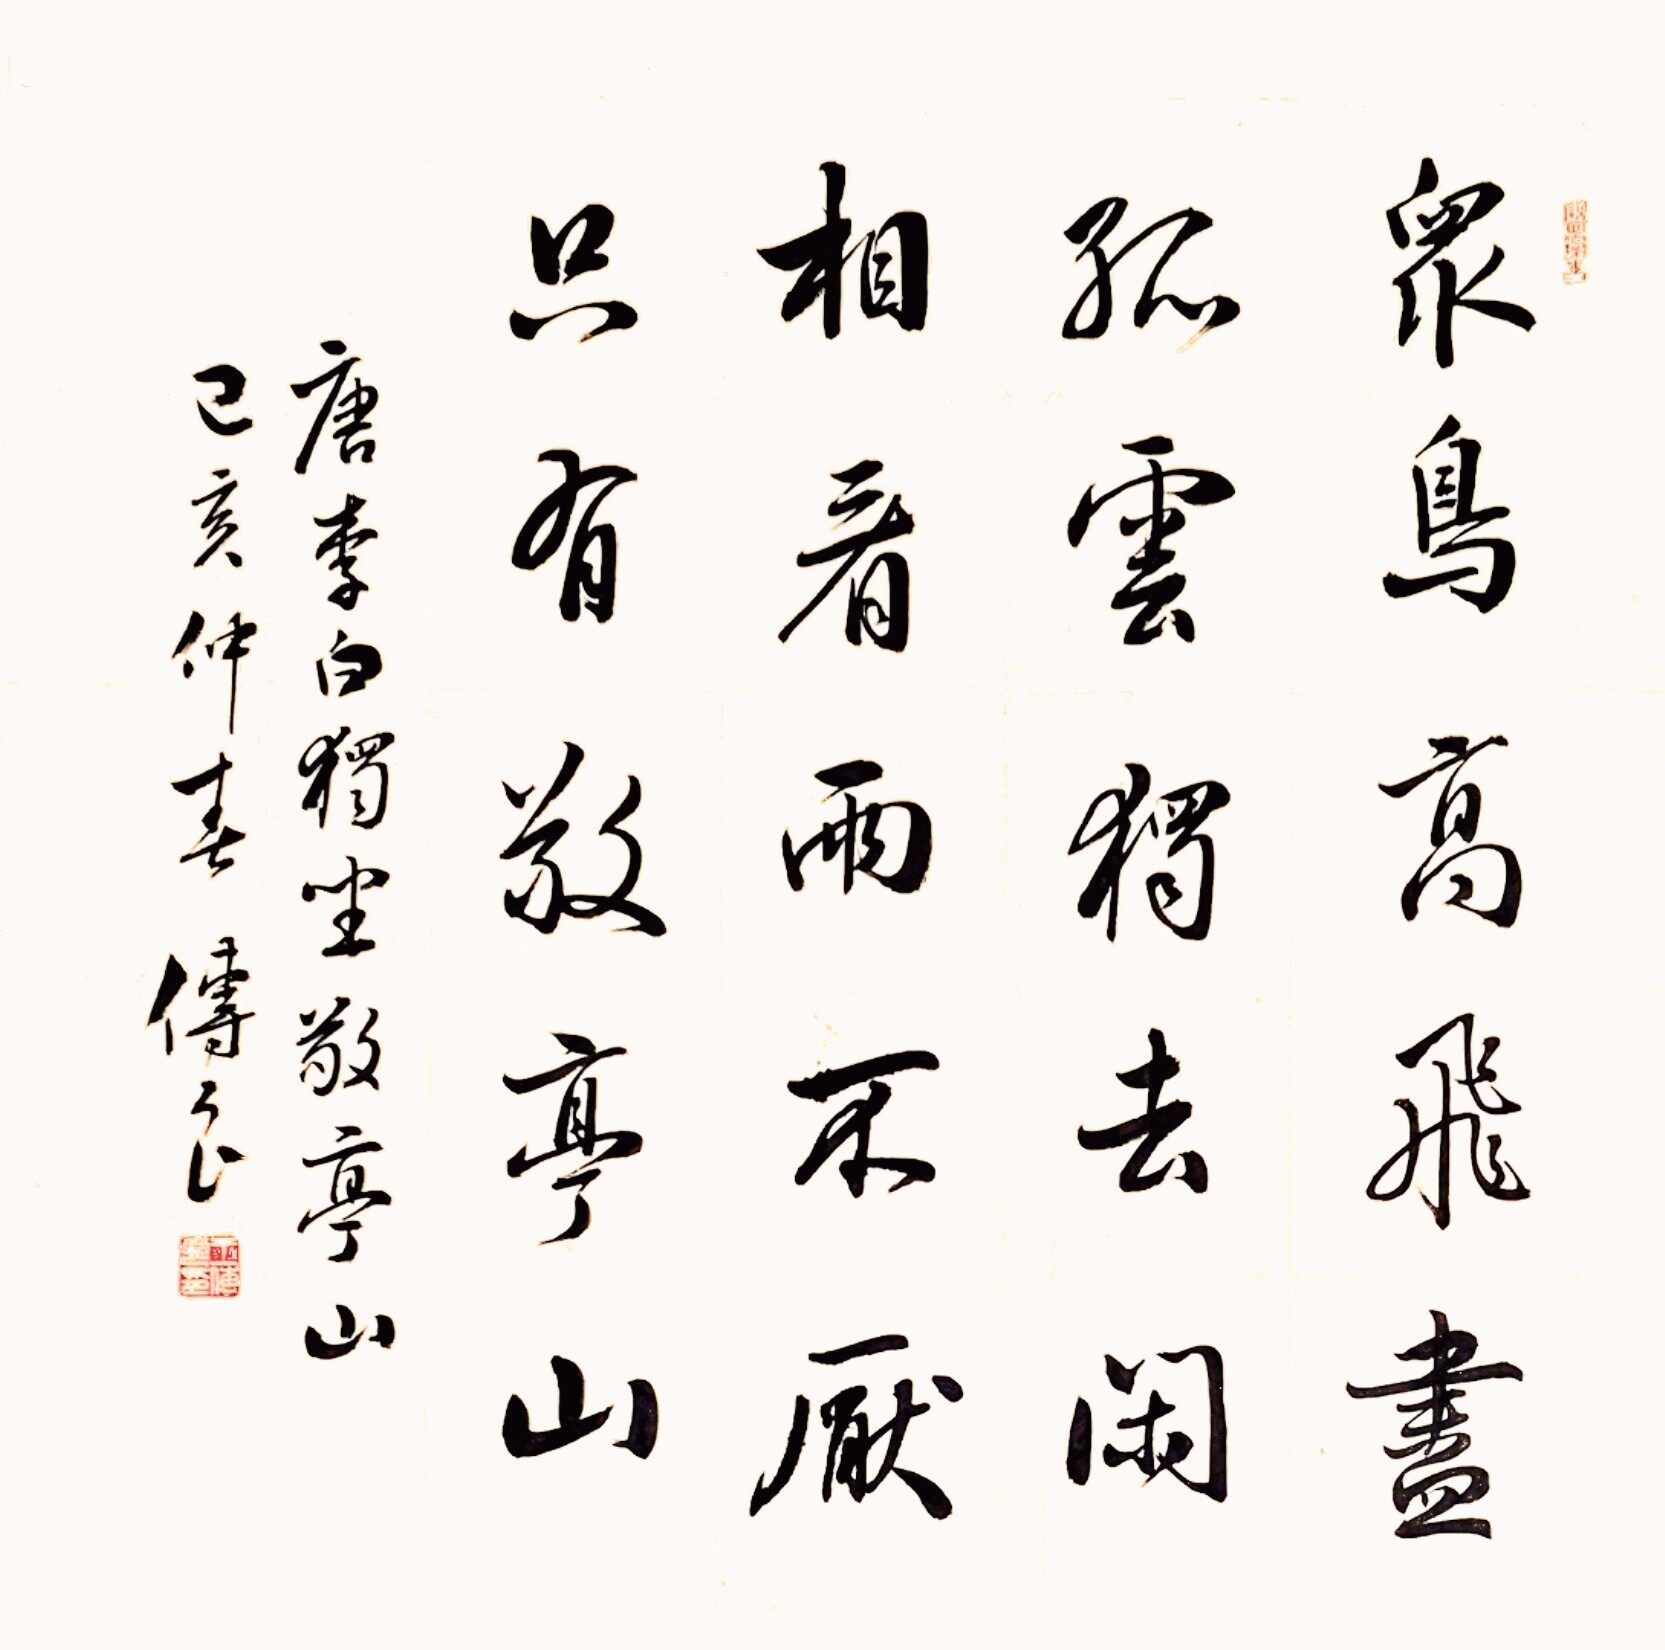 眾鳥高飛盡
孤雲獨去閑
相看兩不厭
只有敬亭山
唐李白獨坐敬亭山
己亥仲春 傳